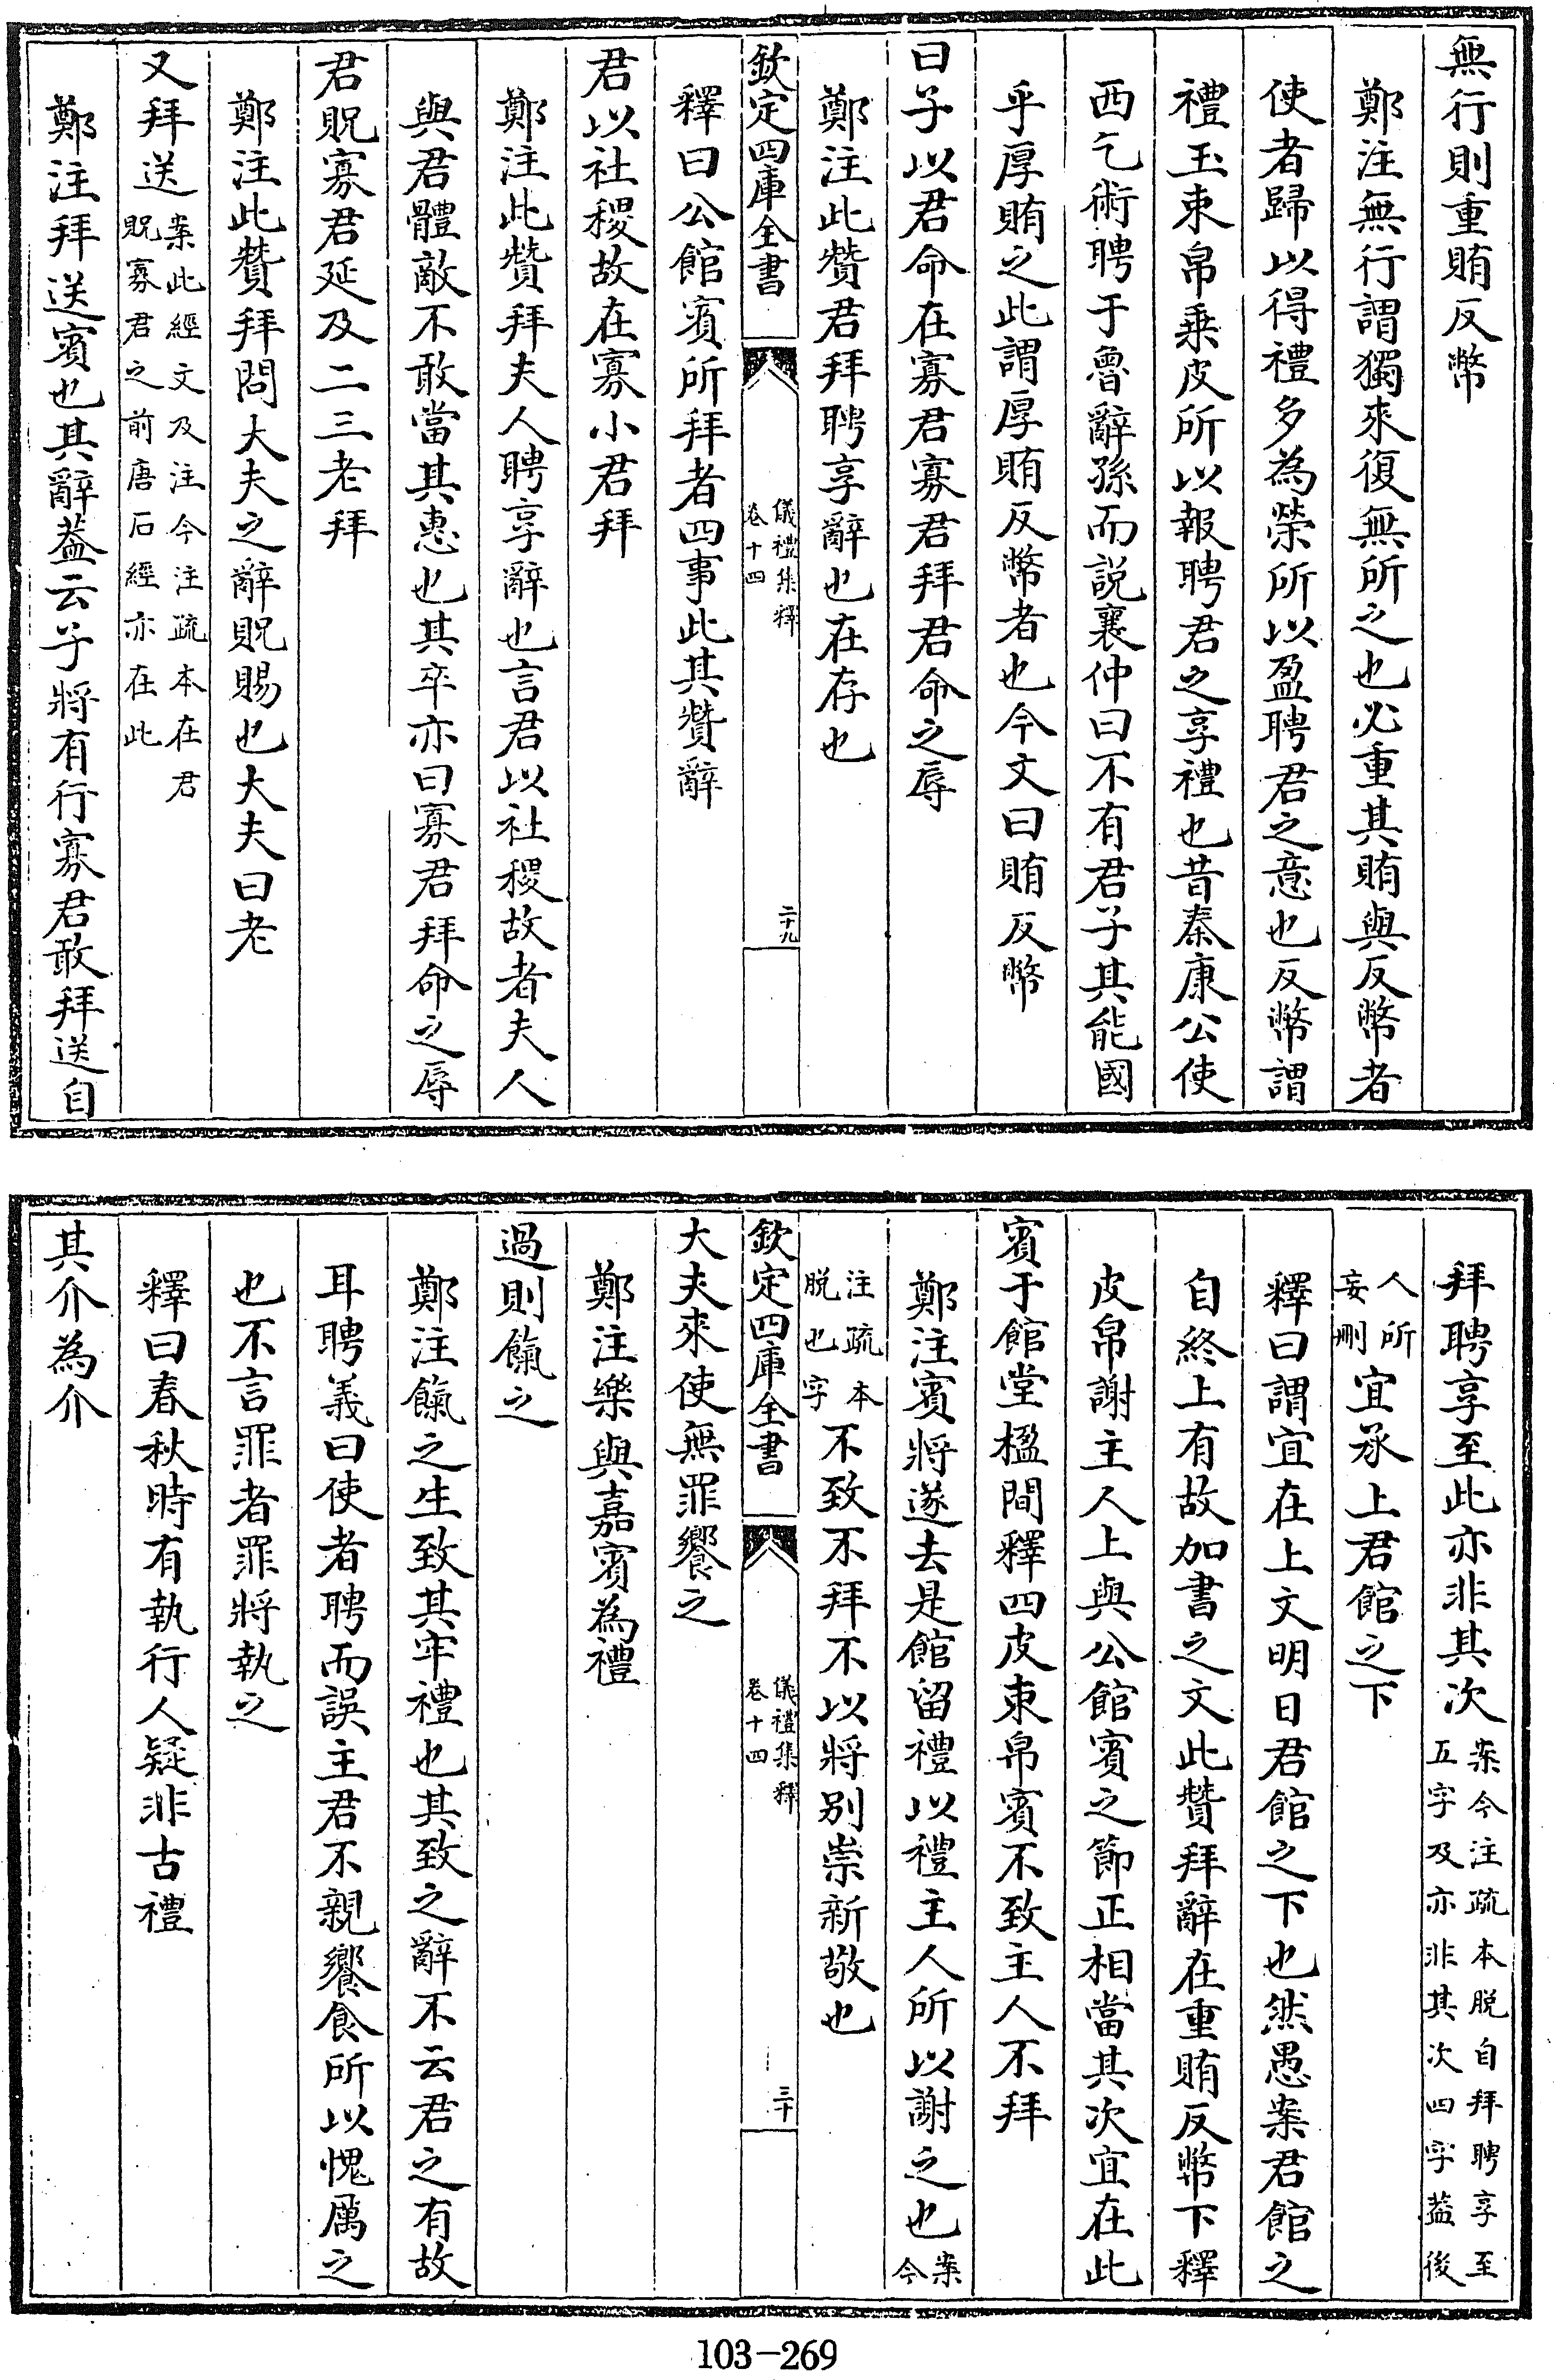 無行則重賄反幣
鄭注無行謂獨來復無所之也必重其賄與反幣者
使者歸以得禮多為榮所以盈聘君之意也反幣謂
禮玉束帛乗皮所以報聘君之享禮也昔秦康公使
西乞術聘于魯辭孫而説襄仲曰不有君子其能國
乎厚賄之此謂厚賄反幣者也今文曰賄反幣
曰子以君命在寡君寡君拜君命之辱
鄭注此贊君拜聘享辭也在存也
欽定四庫全書
儀禮集釋
卷十四
二十九
釋曰公館賓所拜者四事此其贊辭
君以社稷故在寡小君拜
鄭注此贊拜夫人聘享辭也言君以社稷故者夫人
與君體敵不敢當其惠也其卒亦曰寡君拜命之辱
君貺寡君延及二三老拜
鄭注此贊拜問大夫之辭貺賜也大夫曰老
又拜送案此經文及注今注疏本在君
貺寡君之前唐石經亦在此
鄭注拜送賓也其辭葢云子將有行寡君敢拜送自
拜聘享至此亦非其次案今注疏本脱自拜聘享至
五字及亦非其次四字葢後
人所
妄刪宜承上君館之下
釋曰謂宜在上文明日君館之下也然愚案君館之
自終上有故加書之文此贊拜辭在重賄反幣下釋
皮帛謝主人上與公館賓之節正相當其次宜在此
賓于館堂楹間釋四皮束帛賓不致主人不拜
鄭注賓將遂去是館留禮以禮主人所以謝之也案
今
注疏本
脱也字不致不拜不以將别崇新敬也
欽定四庫全書
儀禮集釋
卷十四
三十
大夫來使無罪饗之
鄭注樂與嘉賓為禮
過則餼之
鄭注餼之生致其牢禮也其致之辭不云君之有故
耳聘義曰使者聘而誤主君不親饗食所以愧厲之
也不言罪者罪將執之
釋曰春秋時有執行人疑非古禮
其介為介
103-269